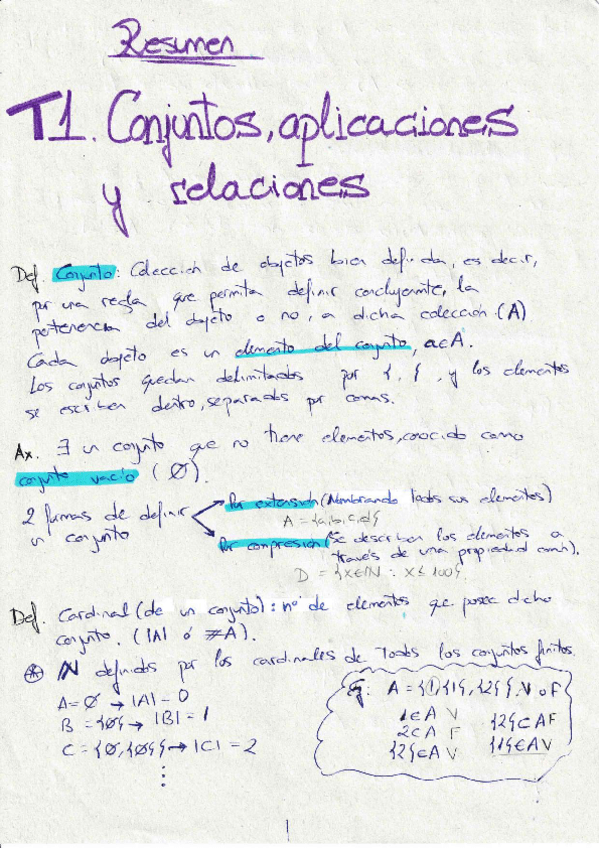 Resumen
T1. Conjuntos, aplicaciones
y relaciones
Def. Conjunto: Colección de objetos bien definida, es decir,
por una regla que permita definir concluyente, la
pertenencia del objeto o no, a dicha colección. (A)
Cada objeto es un elemento del conjunto, a∈A.
Los conjuntos quedan delimitados por {, }, y los elementos
se escriben dentro, separados por comas.
Ax. ∃ un conjunto que no tiene elementos, conocido como
conjunto vacío (∅).
2 formas de definir
un conjunto
Por extensión (Nombrando todos sus elementos)
A = {a,b,c,d}
Por compresión (Se describen los elementos a
través de una propiedad común).
D = {x∈ℕ : x ≤ 100}
Def. Cardinal (de un conjunto): nº de elementos que posee dicho
conjunto. (|A| ó ≠A).
⊛ ℕ definidos por los cardinales de todos los conjuntos finitos.
A=∅ → |A| = 0
B = {∅} → |B| = 1
C = {∅,{∅}} → |C| = 2
⋮
Eg: A = {1,{1},{2}}. V o F
1∈A V
2⊂A F
{2}∈A V
{2}⊂A F
{1}∈A V
1